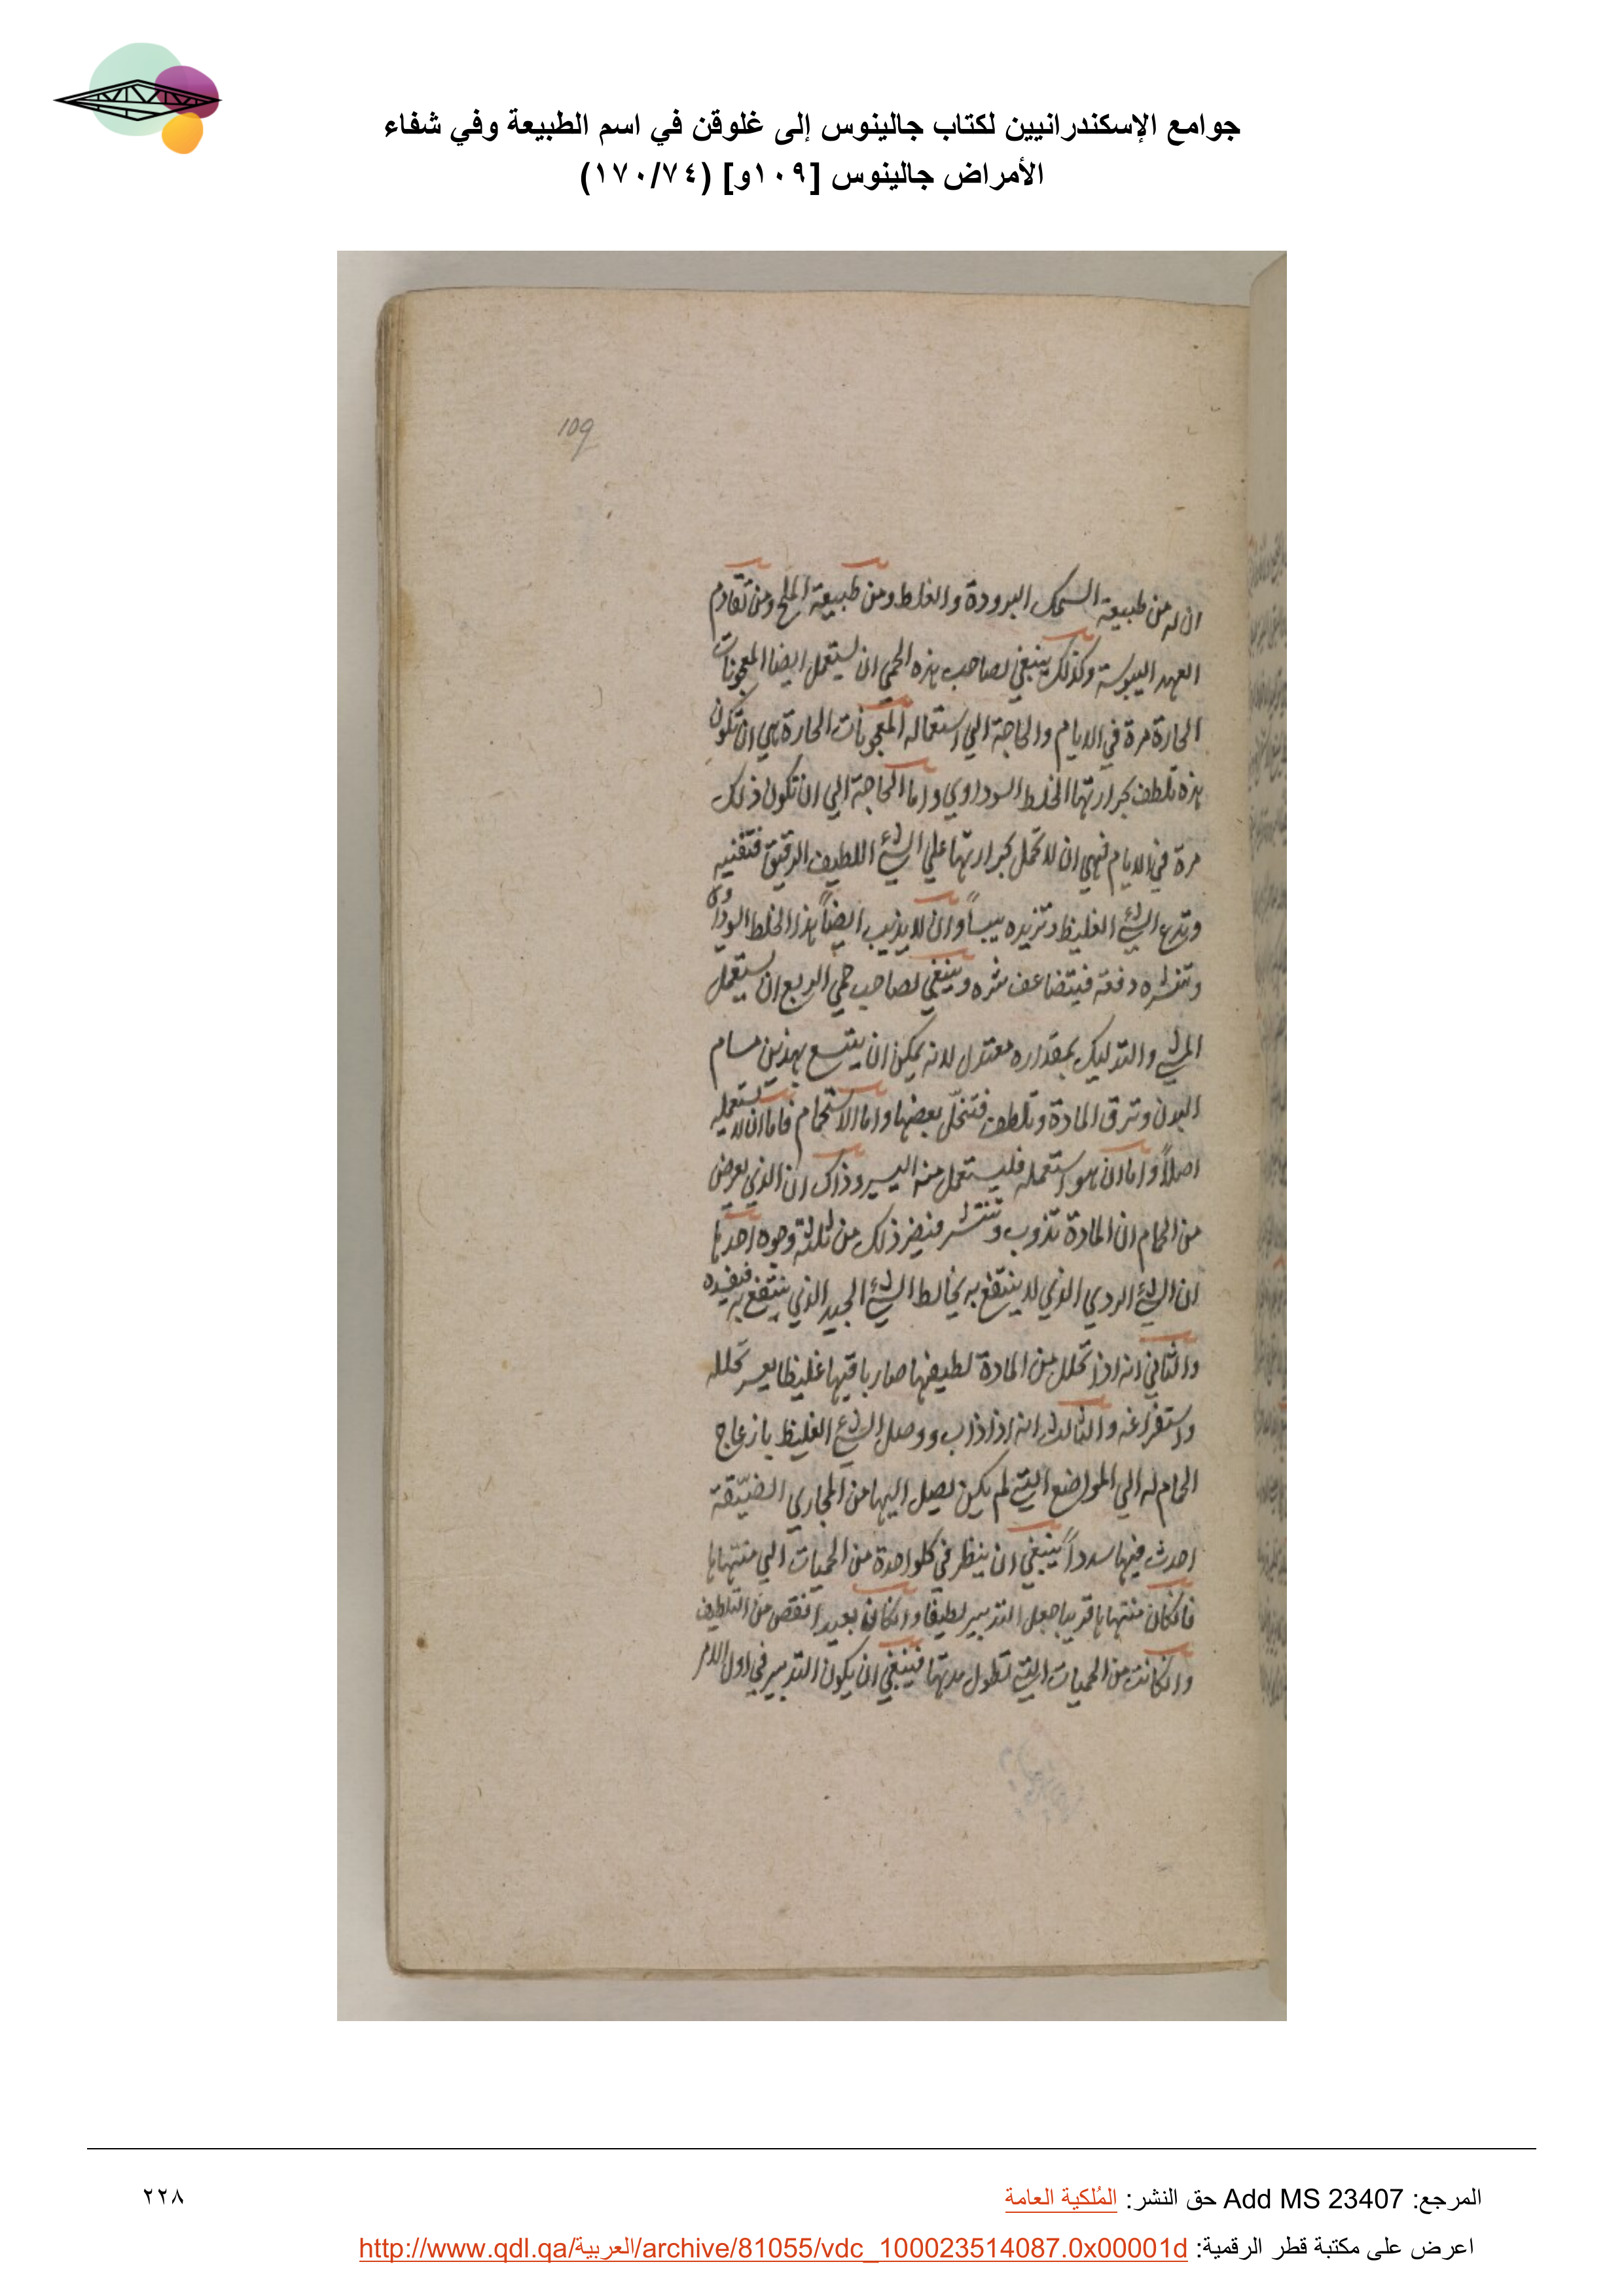 جوامع الإسكندرانيين لكتاب جالينوس إلى غلوقن في اسم الطبيعة وفي شفاء
الأمراض جالينوس [١٠٩و] (١٧٠/٧٤)
109
ان له من طبيعة السمك البرودة والغلظ ومن طبيعة الملح ومن تقادم
العهد اليبوسة وكذلك ينبغي لصاحب هذه الحمى ان يستعمل ايضا المعجونات
الحارة مرة في الايام والحاجة الي استعماله المعجونات الحارة هي ان تكون
هذه تلطف بحرارتها الخلط السوداوي واما الحاجة الي ان تكون ذلك
مرة في الايام فهي ان لا تحمل بحرارتها علي الشئ اللطيف الرقيق فتفنيه
وتدع الشئ الغليظ وتزيده يبساً وان لا يذيب ايضاً هذا الخلط السوداوي
وتنشره دفعة فيتضاعف شره وينبغي لصاحب حمي الربع ان يستعمل
المشي والتدليك بمقداره معتدل لانه يمكن ان يتسع بهذين مسام
البدن وترق المادة وتلطف فتحلّ بعضها واما الاستحمام فاما ان لا يستعمله
اصلاً واما ان هو استعمله فليستعمل منه اليسير وذاك ان الذي يعرض
من الحمام ان المادة تذوب وتنتشر فيضر ذلك من ثلثة وجوه احدها
ان الشئ الردي الذي لا ينتفع به يخالط الشئ الجيد الذي ينتفع به فيفسده
والثاني انه اذا تحلل من المادة لطيفها صار باقيها غليظا يعسر تحلله
واستفراغه والثالث انه اذا ذاب ووصل الشئ الغليظ بازعاج
الحمام له الي المواضع التي لم يكن يصل اليها من المجاري الضيّقة
احدث فيها سدداً ينبغي ان ينظر في كلواحدة من الحميات الي منتهاها
فانكان منتهاها قريبا جعل التدبير لطيفا وانكان بعيدا نقص من التلطيف
وانكانت من الحميات التي تطول مدتها فينبغي ان يكون التدبير في اول الامر
المرجع: Add MS 23407 حق النشر: المُلكية العامة
٢٢٨
اعرض على مكتبة قطر الرقمية: http://www.qdl.qa/العربية/archive/81055/vdc_100023514087.0x00001d